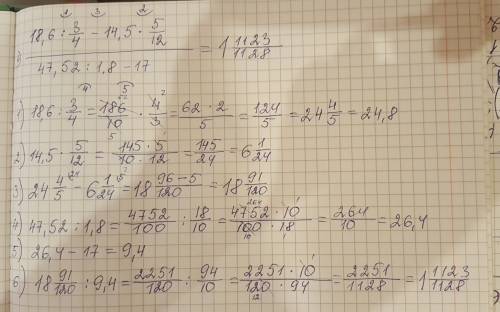 1 3 2
(18,6 : 3/4 − 14,5 · 5/12) / (47,52 : 1,8 − 17) = 1 1123/1128
4 5
1) 18,6 : 3/4 = 186/10 · 4/3 = 62 · 2/5 = 124/5 = 24 4/5 = 24,8
2) 14,5 · 5/12 = 145 · 5/10 · 12 = 145/24 = 6 1/24
3) 24 4/5 − 6 1/24 = 18 96 − 5/120 = 18 91/120
4) 47,52 : 1,8 = 4752/100 : 18/10 = 4752 · 10/100 · 18 = 264/10 = 26,4
5) 26,4 − 17 = 9,4
6) 18 91/120 : 9,4 = 2251/120 : 94/10 = 2251 · 10/120 · 94 = 2251/1128 = 1 1123/1128